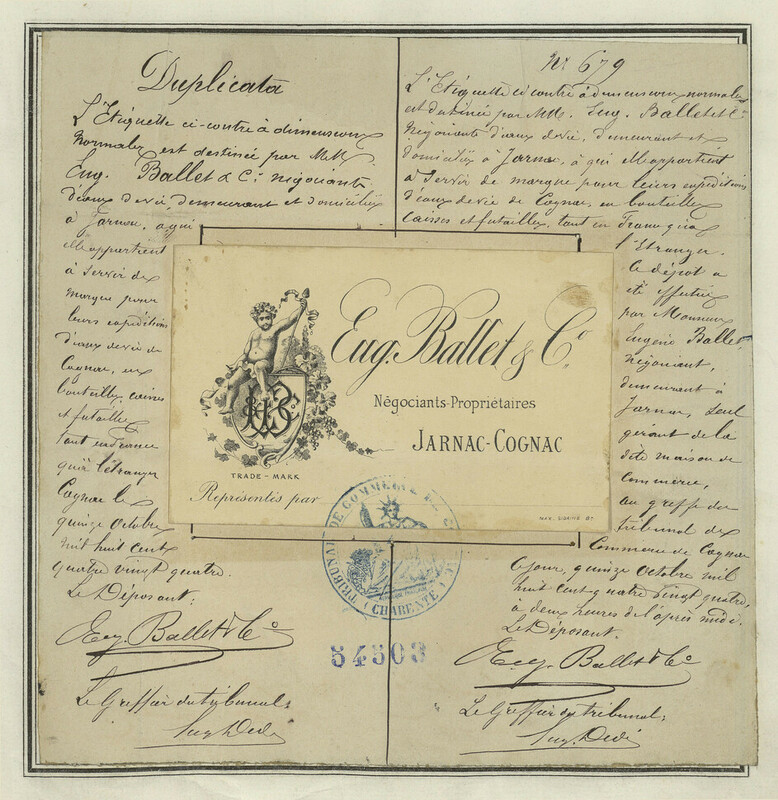 Duplicata
L'Etiquette ci-contre à dimensions
normales est destinée par MM.
Eug. Ballet & Cie négociants
d'eaux de vie demeurant et domiciliés
à Jarnac, à qui
elle appartient
à servir de
marque pour
leurs expéditions
d'eaux de vie de
Cognac, en
bouteilles, caisses
et futailles
tant en France
qu'à l'étranger
Cognac le
quinze Octobre
mil huit cent
quatre vingt quatre.
Le Déposant:
Eug. Ballet & Co
Le Greffier du tribunal:
No 679
L'Etiquette ci-contre à dimensions normales
et destinée par MM. Eug. Ballet et Cie
Négociants d'eaux de vie, demeurant et
domiciliés à Jarnac, à qui elle appartient
à servir de marque pour leurs expéditions
d'eaux de vie de Cognac, en bouteilles
caisses et futailles, tant en France qu'à
l'Etranger.
Le dépôt a
été effectué
par Monsieur
Eugène Ballet
négociant,
demeurant à
Jarnac, seul
gérant de la
dite maison de
Commerce,
au greffe du
tribunal de
Commerce de Cognac
ce jour, quinze Octobre mil
huit cent quatre vingt quatre,
à deux heures de l'après midi.
Le Déposant.
Eug. Ballet & Co
Le Greffier du tribunal:
Eug. Ballet & Co.
Négociants-Propriétaires
JARNAC-COGNAC
TRADE-MARK
Représentés par
TRIBUNAL DE COMMERCE DE
CHARENTE
54503